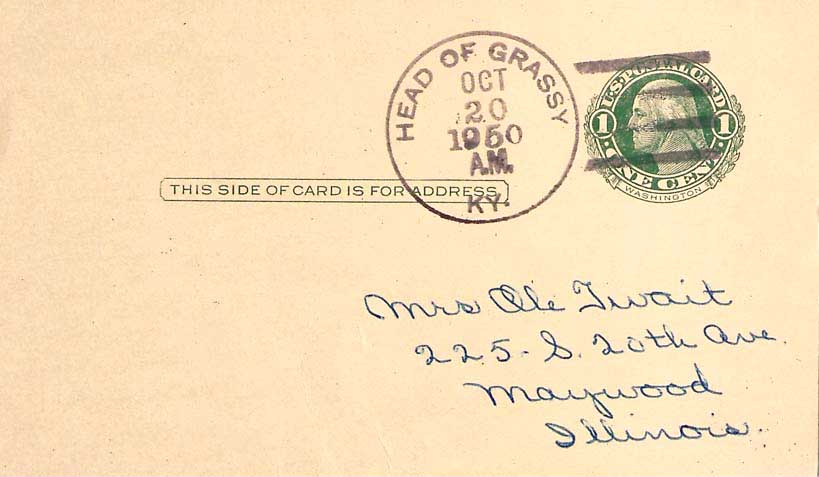 HEAD OF GRASSY
OCT
20
1950
A.M.
KY.
U.S. POSTAL CARD
1 1
ONE CENT
WASHINGTON
THIS SIDE OF CARD IS FOR ADDRESS
Mrs Ole Twait
225 - S. 20th Ave.
Maywood
Illinois.